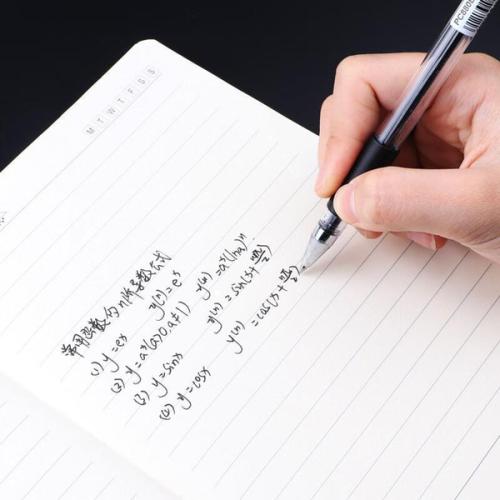 M T W T F S S
PC880B
常用函数的n阶导数公式
(1) y=eˣ y⁽ⁿ⁾=eˣ
(2) y=aˣ(a>0.a≠1) y⁽ⁿ⁾=aˣ(lna)ⁿ
(3) y=sinx y⁽ⁿ⁾=sin(x+nπ/2)
(4) y=cosx y⁽ⁿ⁾=cos(x+nπ/2)